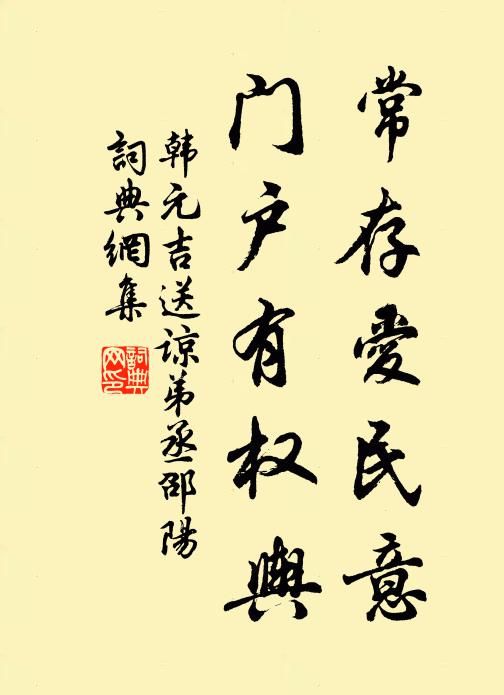 常存愛民意
门户有权舆
韩元吉送谅弟丞邵陽
詞典網集
詞典网印